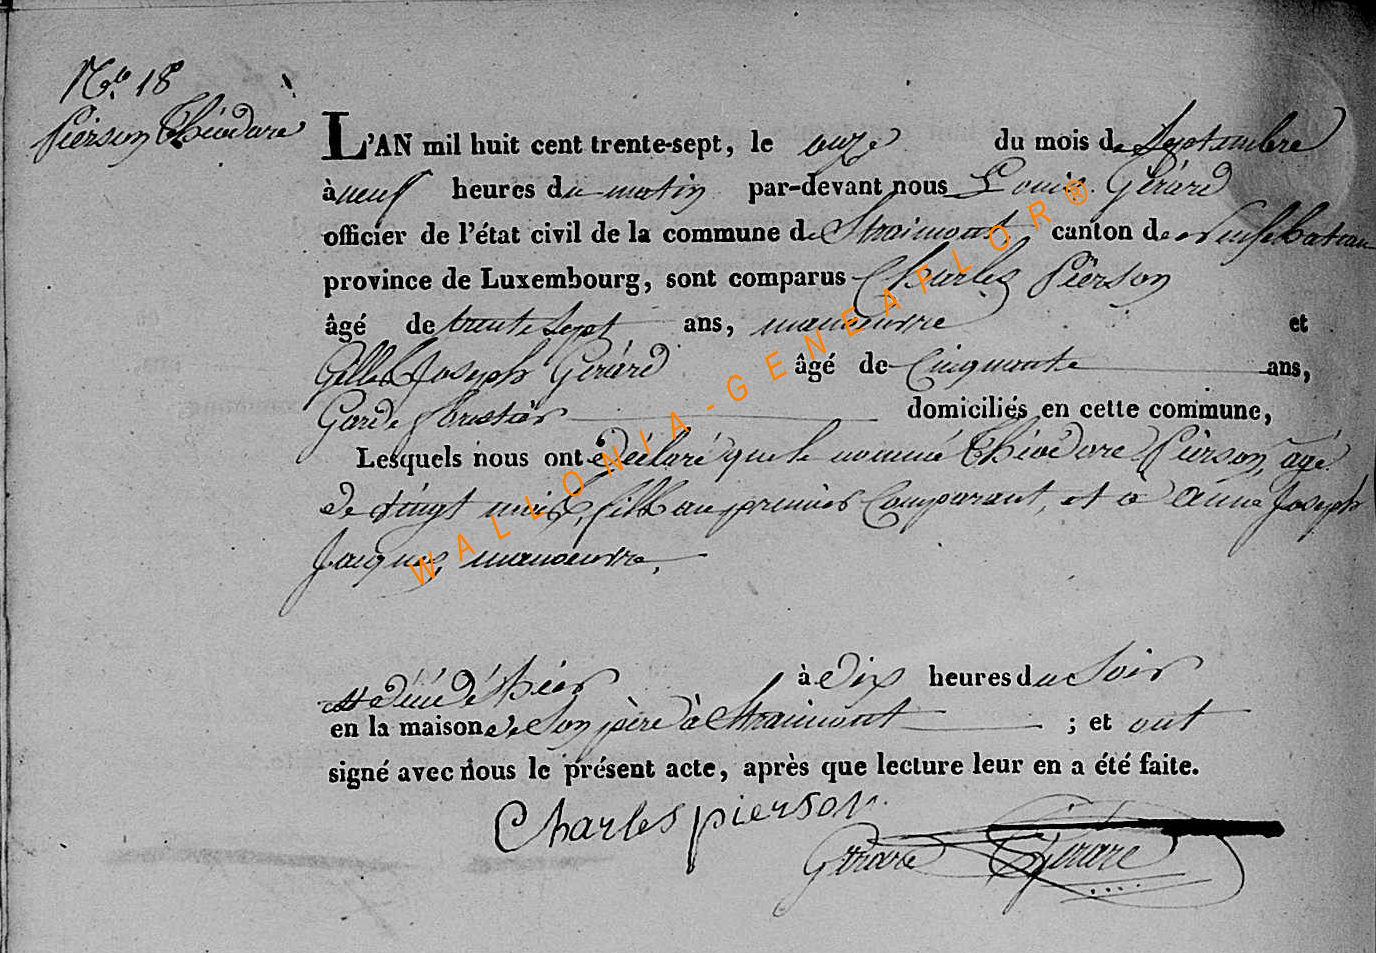 No. 18
Pierson Théodore
L'AN mil huit cent trente-sept, le onze du mois de Septembre
à neuf heures du matin par-devant nous Louis Gérard
officier de l'état civil de la commune de Straimont canton de Neufchateau
province de Luxembourg, sont comparus Charles Pierson
âgé de trente sept ans, manoeuvre et
Gilles Joseph Gérard âgé de Cinquante ans,
Garde forestier domiciliés en cette commune,
Lesquels nous ont déclaré que le nommé Théodore Pierson, agé
de vingt mois, fils au premier Comparant, et a Anne Joseph
Jacques, manoeuvre,
est décédé hier à dix heures du Soir
en la maison de Son père à Straimont ; et ont
signé avec nous le présent acte, après que lecture leur en a été faite.
Charles pierson
Gerard Gerard
WALLONIA-GENEAFLOR®